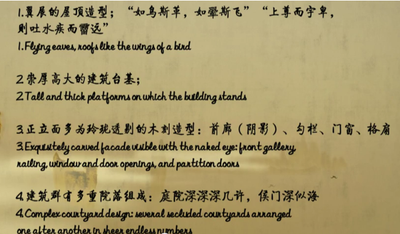 1.翼展的屋顶造型；“如鸟斯革，如翚斯飞”“上尊而宇卑，
则吐水疾而霤远”
1.Flying eaves, roofs like the wings of a bird
2.崇厚高大的建筑台基；
2.Tall and thick platforms on which the building stands
3.正立面多为玲珑透剔的木刻造型：前廊（阴影）、勾栏、门窗、格扇
3.Exquisitely carved facade visible with the naked eye: front gallery,
railing, window and door openings, and partition doors
4.建筑群有多重院落组成：庭院深深深几许，侯门深似海
4.Complex courtyard design: several secluded courtyards arranged
one after another in sheer endless numbers